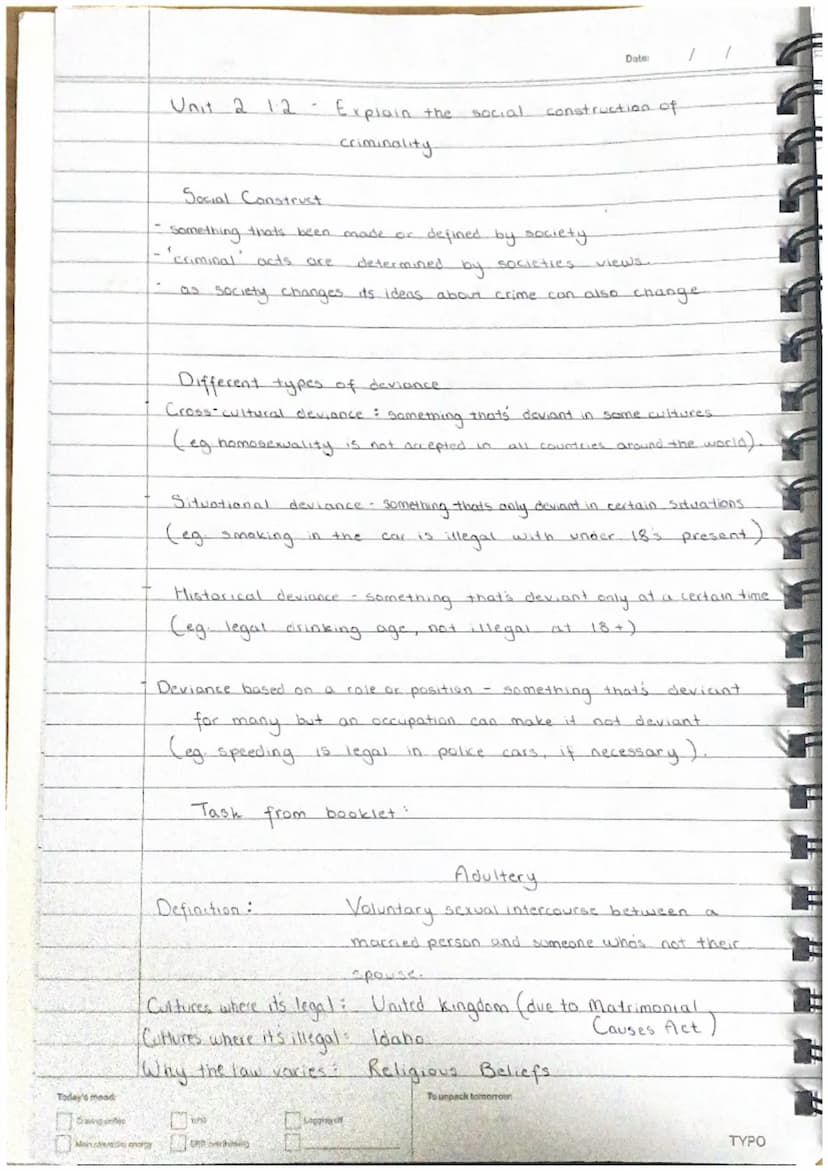 Date: / /
Unit 2 1.2 - Explain the social construction of
criminality
Social Construct
- something thats been made or defined by society
- 'criminal' acts are determined by societies views.
- as society changes its ideas about crime can also change
Different types of deviance
- Cross-cultural deviance : something thats deviant in some cultures
(eg homosexuality is not accepted in all countries around the world).
- Situational deviance - something thats only deviant in certain situations
(eg. smoking in the car is illegal with under 18's present)
- Historical deviance - something that's deviant only at a certain time
(eg. legal drinking age, not illegal at 18+)
- Deviance based on a role or position - something that's deviant
for many but an occupation can make it not deviant.
(eg. speeding is legal in police cars, if necessary).
Task from booklet :
Adultery
Definition : Voluntary sexual intercourse between a
married person and someone who's not their
spouse.
Cultures where its legal : United Kingdom (due to Matrimonial
Causes Act)
Cultures where it's illegal : Idaho
Why the law varies : Religious Beliefs
Today's mood: To unpack tomorrow:
Logging off
Main character energy overthinking
TYPO